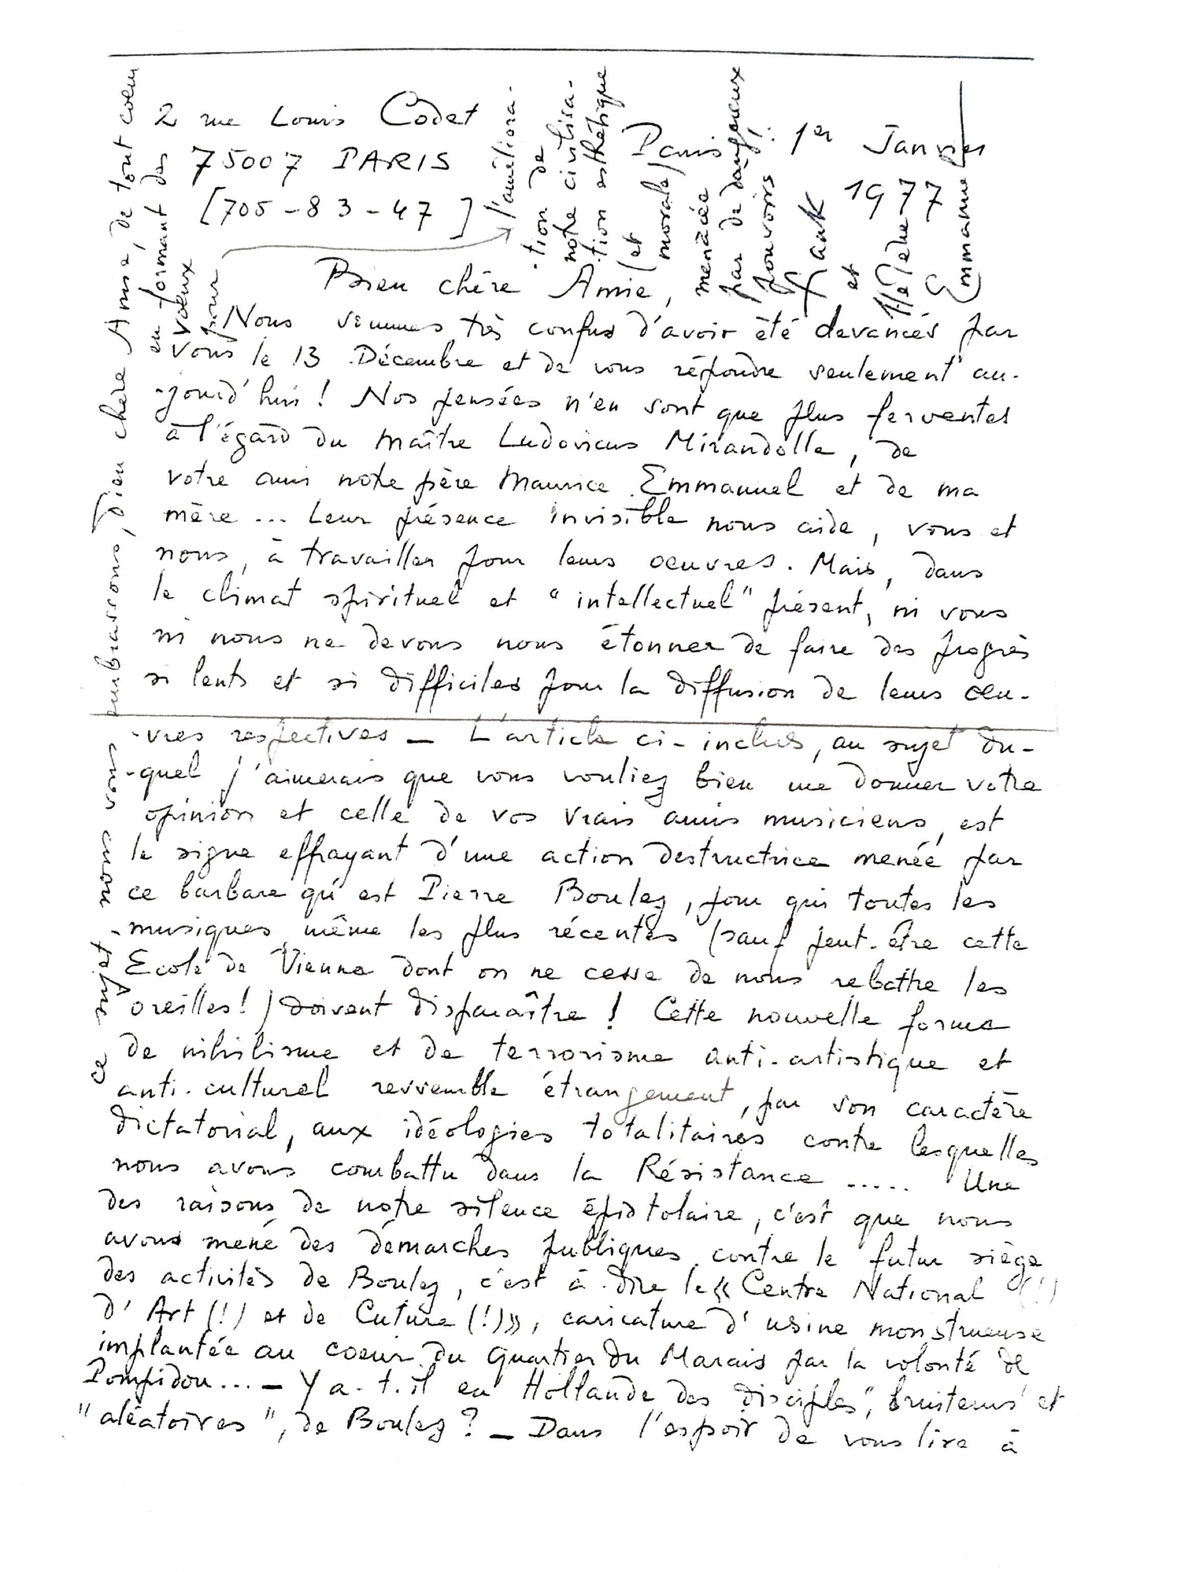 2 rue Louis Codet
75007 PARIS
[705-83-47]
Paris 1er Janvier
1977
Bien chère Amie,
Nous sommes très confus d'avoir été devancés par
vous le 13 Décembre et de vous répondre seulement au-
-jourd'hui ! Nos pensées n'en sont que plus ferventes
à l'égard du Maître Ludovicus Mirandolle, de
votre ami notre père Maurice Emmanuel et de ma
mère ... Leur présence invisible nous aide, vous et
nous, à travailler pour leurs oeuvres. Mais, dans
le climat spirituel et "intellectuel" présent, ni vous
ni nous ne devons nous étonner de faire des progrès
si lents et si difficiles pour la diffusion de leurs oeu-
-vres respectives _ L'article ci-inclus, au sujet du-
-quel j'aimerais que vous vouliez bien me donner votre
opinion et celle de vos vrais amis musiciens, est
le signe effrayant d'une action destructrice menée par
ce barbare qu'est Pierre Boulez, pour qui toutes les
musiques, même les plus récentes (sauf peut-être cette
Ecole de Vienne dont on ne cesse de nous rebattre les
oreilles!) doivent disparaître ! Cette nouvelle forme
de nihilisme et de terrorisme anti-artistique et
anti-culturel ressemble étrangement, par son caractère
dictatorial, aux idéologies totalitaires contre lesquelles
nous avons combattu dans la Résistance ..... Une
des raisons de notre silence épistolaire, c'est que nous
avons mené des démarches publiques contre le futur siège
des activités de Boulez, c'est à dire le « Centre National (!)
d'Art (!) et de Cuture (!)», caricature d'usine monstrueuse
implantée au coeur du Quartier du Marais par la volonté de
Pompidou... _ Y a-t-il en Hollande des disciples, "bruiteurs" et
"aléatoires", de Boulez ? _ Dans l'espoir de vous lire à
ce sujet, nous vous embrassons, bien chère Amie, de tout coeur
en formant des
voeux
pour
l'améliora-
-tion de
notre civilisa-
-tion esthétique
(et
morale)
menacée
par de dangereux
pouvoirs !
et
Hélène
Emmanuel